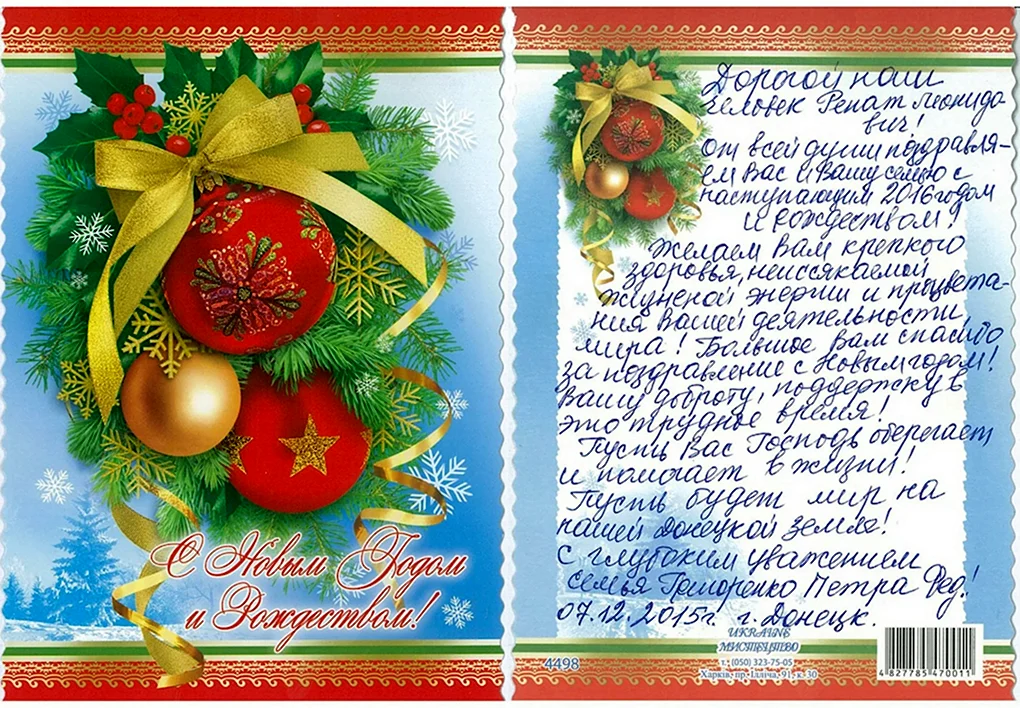 С Новым Годом
и Рождеством!
Дорогой наш
человек Ренат Леонидо
вич!
От всей души поздравля-
ем Вас и Вашу семью с
наступающим 2016 годом
и рождеством!
Желаем Вам крепкого
здоровья, неиссякаемой
жизненой энергии и процвета-
ния Вашей деятельности,
мира! Большое Вам спасибо
за поздравление с Новым годом!
Вашу доброту, поддержку в
это трудное время!
Пусть Вас Господь оберегает
и помогает в жизни!
Пусть будет мир на
нашей Донецкой земле!
С глубоким уважением
семья Петра Фед!
07.12.2015г. г. Донецк.
UKRAINE
МИСТЕЦТВО
4498
т. (050) 323-75-05
Харків, пр. Ілліча, 91, к. 30
4 827785 470011